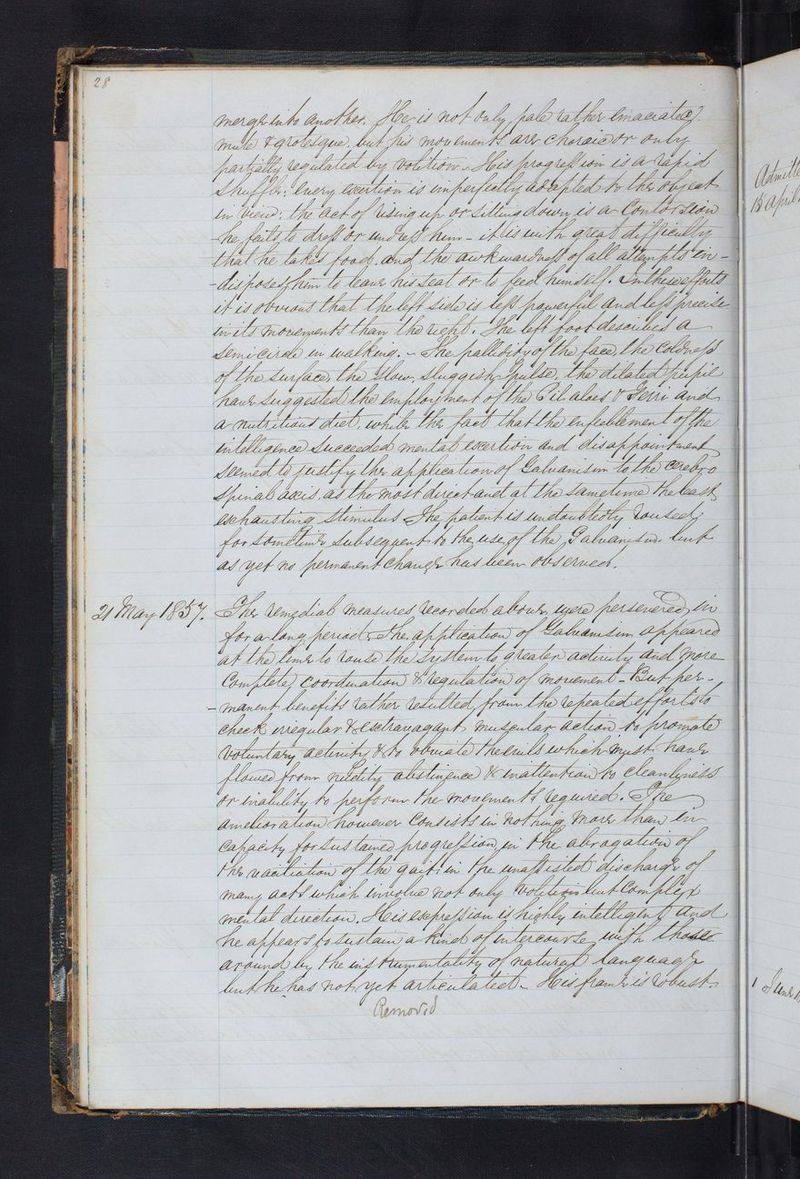 28
merge into another. He is not only pale rather emaciated,
mute & grotesque, but his movements are choraic or only
partially regulated by volition. His progression is a rapid
shuffle: every exertion is imperfectly adapted to the object
in view: the act of rising up or sitting down is a contortion
he fails to dress or undress him - it is with great difficulty
that he takes food and the awkwardness of all attempts in-
-disposes him to leave his seat or to feed himself. In these efforts
it is obvious that the left side is less powerful and less precise
in its movements than the right. The left foot describes a
semicircle in walking. - The pallidity of the face, the coldness
of the surface, the slow, sluggish pulse, the dilated pupil
have suggested the employment of the Pil aloes & Ferri and
a nutritious diet, while the fact that the enfeeblement of the
intelligence succeeded mental exertion and disappointment
seemed to justify the application of Galvanism to the cerebro
spinal axis as the most direct and at the same time the least
exhausting stimulus. The patient is undoubtedly roused
for sometime subsequent to the use of the Galvanism but
as yet no permanent change has been observed.
21 May 1857. The remedial measures recorded above were persevered in
for a long period. The application of Galvanism appeared
at the time to rouse the system to greater activity and more
complete coordination & regulation of movement - But per-
-manent benefits rather resulted from the repeated efforts to
check irregular & extravagant muscular action to promote
voluntary activity & to obviate the evils which must have
flowed from nudity abstinence & inattention to cleanliness
or inability to perform the movements required. The
amelioration however consists in nothing more than in
capacity for sustained progression, in the abrogation of
the vacillation of the gait in the unassisted discharge of
many acts which involve not only volition but complex
mental direction. His expression is highly intelligent and
he appears to sustain a kind of intercourse with those
around by the instrumentality of natural language
but he has not yet articulated. - His frame is robust.
Removed
Admitte
15 April
1 June